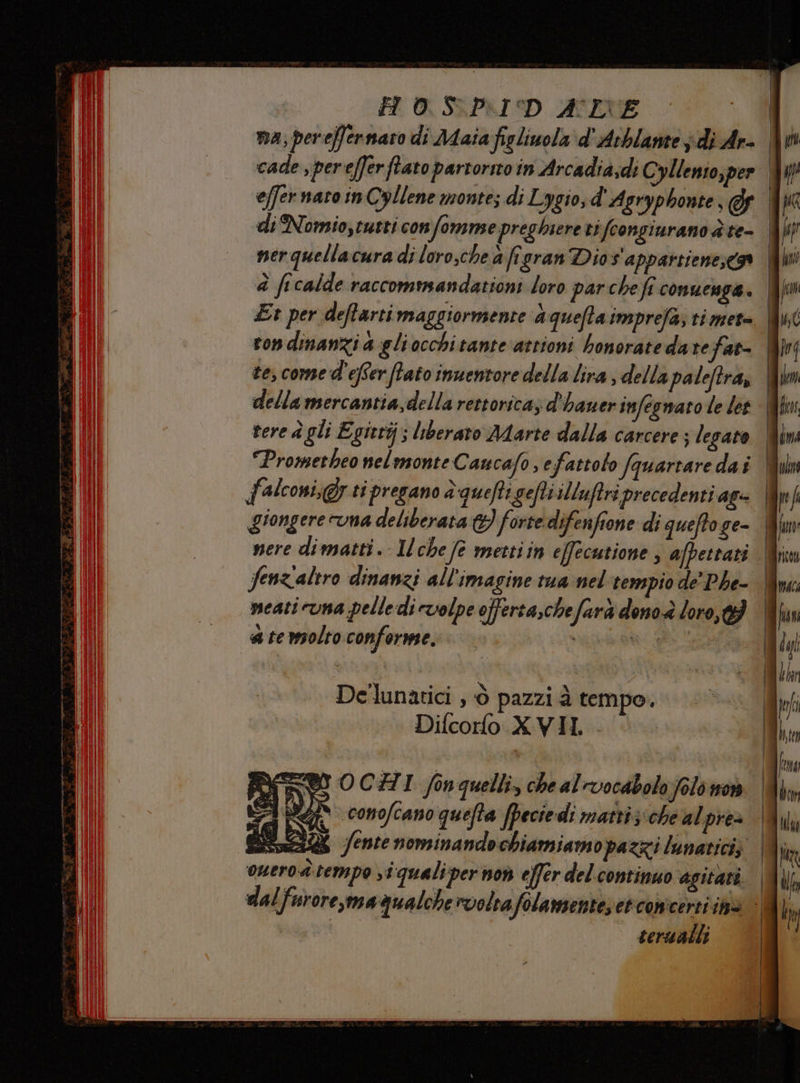 HOSPIDALE
na, per esser nato di Maia figliuola d'Athlante; di Ar-
cade, per esser stato partorito in Arcadia, di Cyllenio, per
esser nato in Cyllene monte; di Lygio, d'Agryphonte, &
di Nomio, tutti con somme preghiere ti scongiurano à te-
ner quella cura di loro, che à si gran Dio s'appartiene, &
à si calde raccommandationi loro par che si conuenga.
Et per destarti maggiormente à questa impresa, ti met-
ton dinanzi à gli occhi tante attioni honorate da te fat-
te, come d'esser stato inuentore della lira, della palestra,
della mercantia, della rettorica, d'hauer insegnato le let
tere à gli Egittij; liberato Marte dalla carcere; legato
Prometheo nel monte Caucaso, e fattolo squartare dai
falconi, & ti pregano à questi gesti illustri precedenti ag-
giongere vna deliberata & forte difensione di questo ge-
nere di matti. Il che se metti in essecutione, aspettati
senz'altro dinanzi all'imagine tua nel tempio de' Phe-
neati vna pelle di volpe offerta, che sarà dono à loro, &
à te molto conforme.
De' lunatici, ò pazzi à tempo.
Discorso XVII.
POCHI son quelli, che al vocabolo solo non
conoscano questa specie di matti; che al pre-
sente nominando chiamiamo pazzi lunatici,
ouero à tempo, i quali per non esser del continuo agitati
dal furore, ma à qualche volta solamente, et con certi in-
terualli